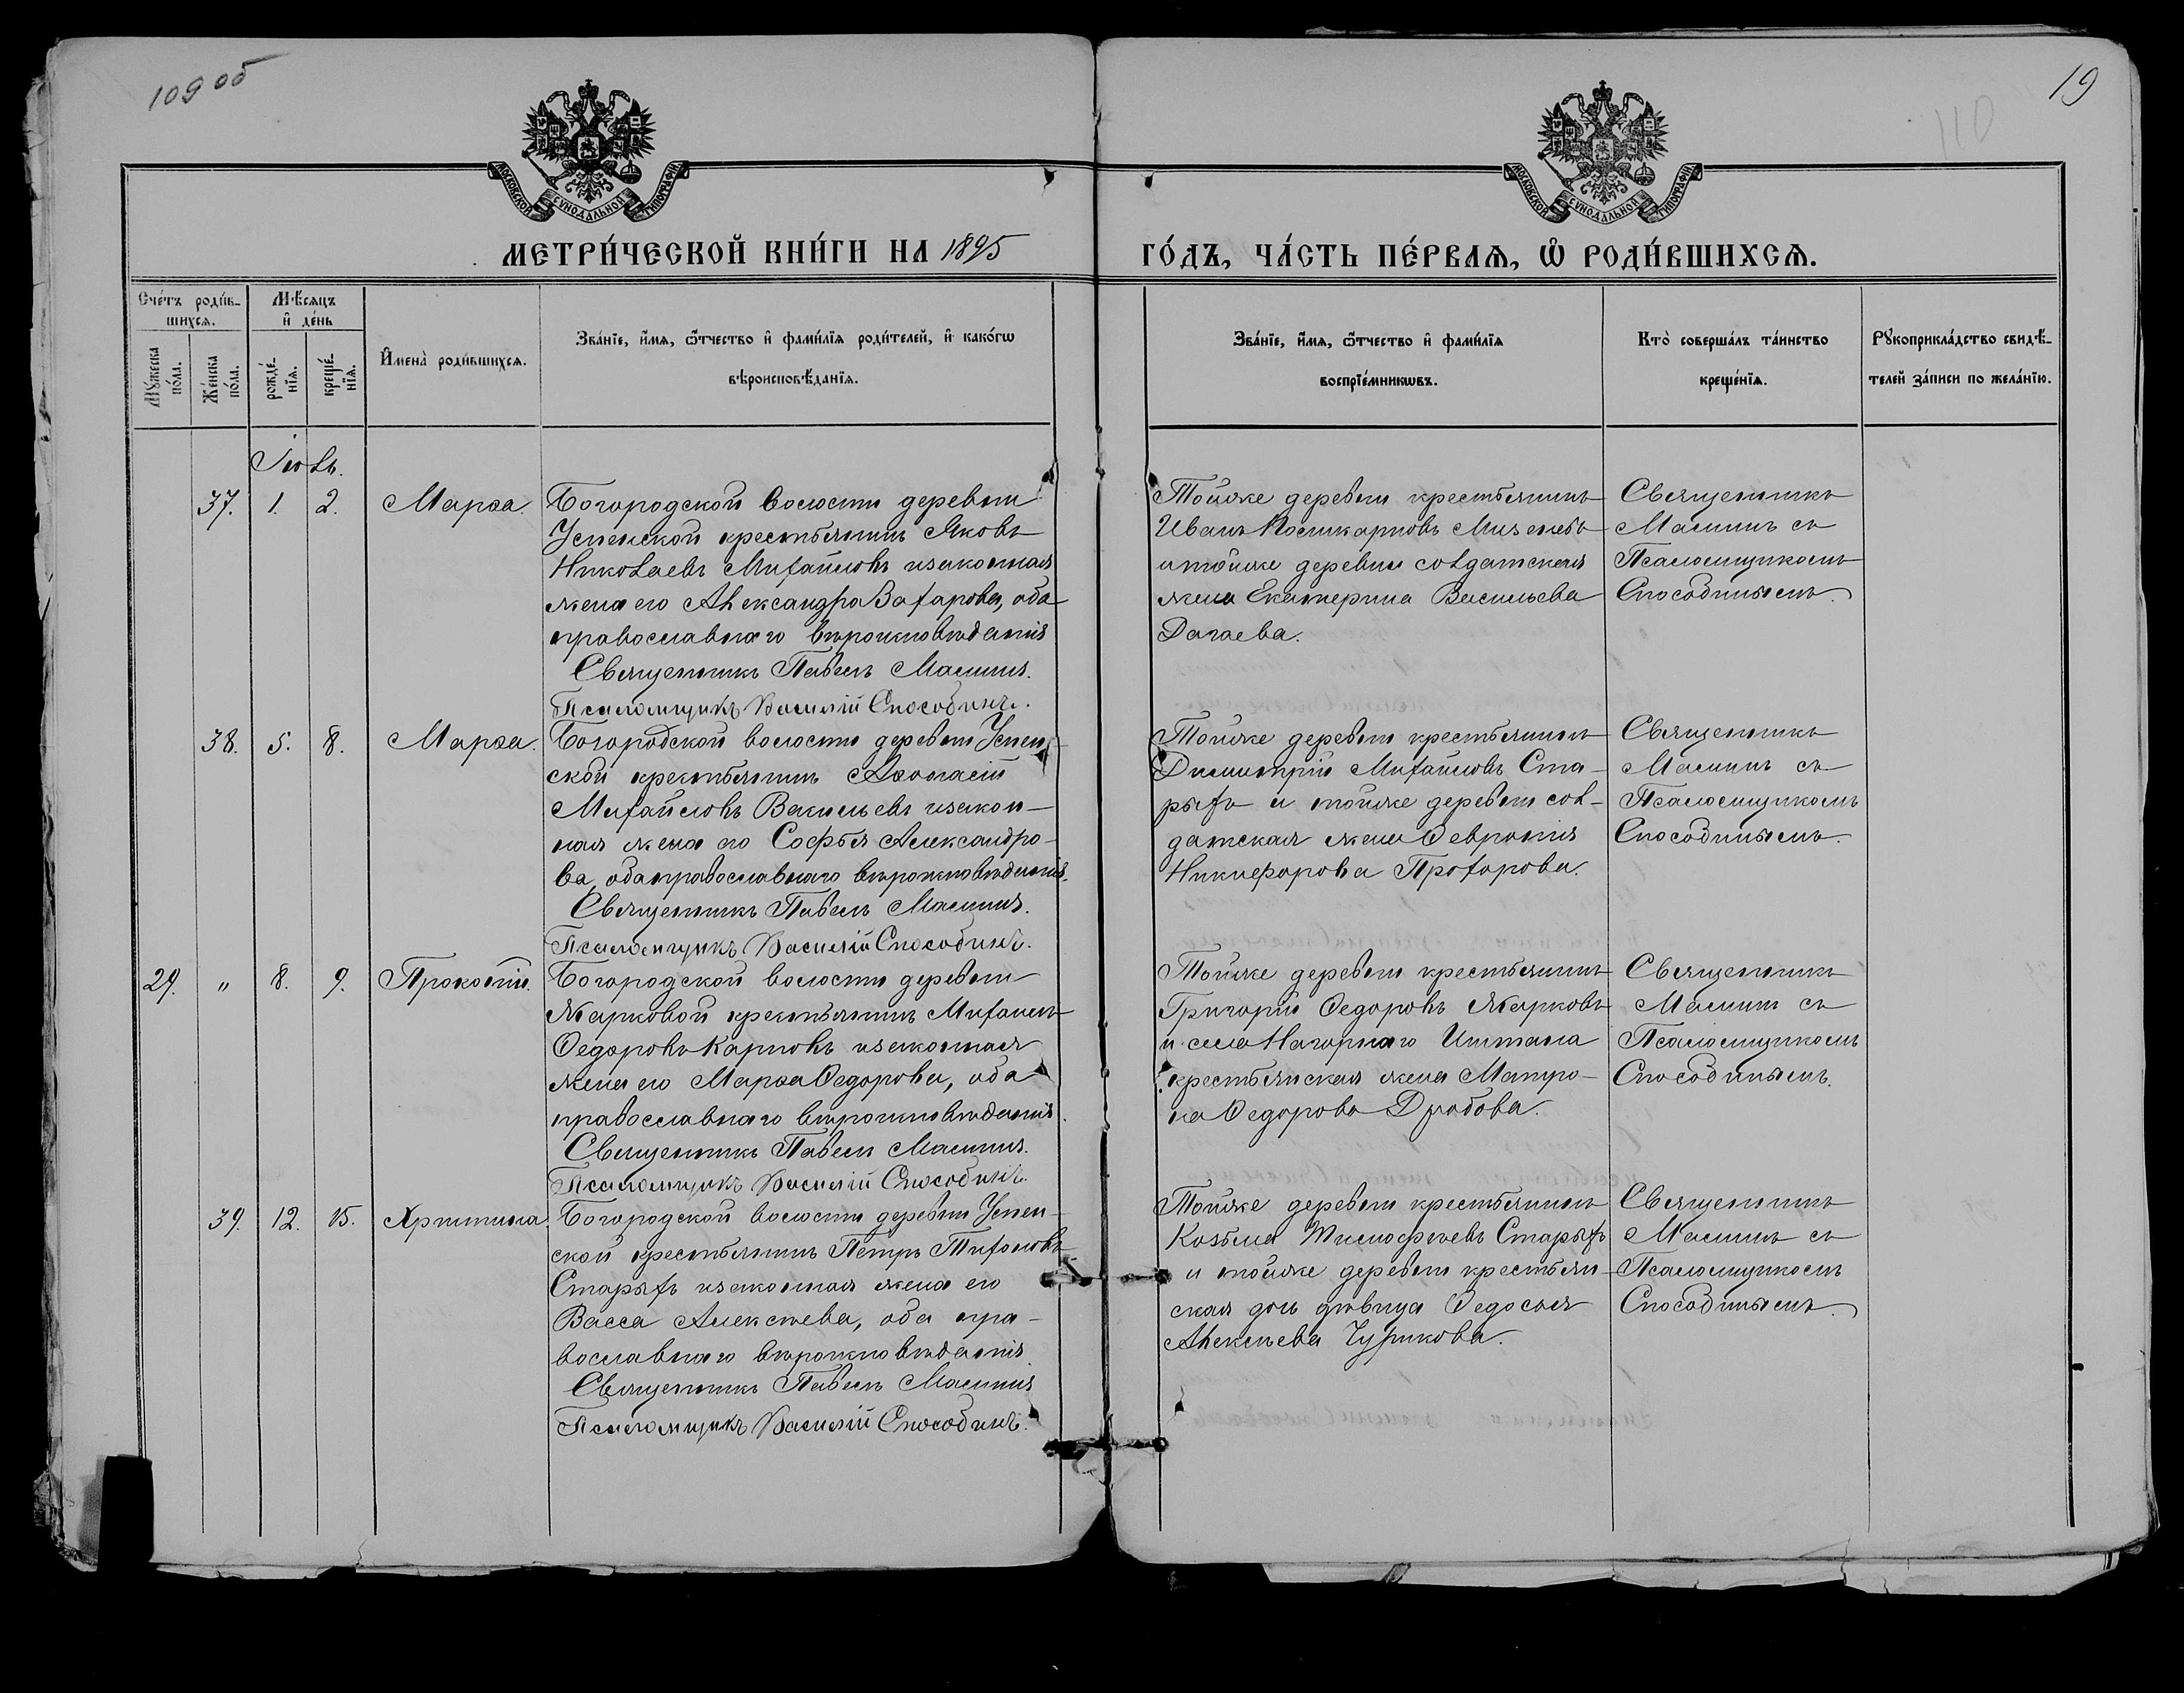 109 об
19
110
МОСКОВСКОЙ СУНОДАЛЬНОЙ ТИПОГРАФІИ
МОСКОВСКОЙ СУНОДАЛЬНОЙ ТИПОГРАФІИ
МЕТРИ́ЧЕСКОЙ КНИ́ГИ НА 1895
ГО́ДЪ, ЧА́СТЬ ПЕ́РВАѦ, Ѡ҆ РОДИ́ВШИХСѦ.
Сче́тъ роди́в-
шихсѧ.
Мѣ́сѧцъ
и҆ де́нь
Мꙋ́жеска
по́ла.
Же́нска
по́ла.
рожде́-
нїѧ.
креще́-
нїѧ.
И҆мена̀ роди́вшихсѧ.
Зва́нїе, и҆́мѧ, ѻ҆́тчество и҆ фами́лїѧ роди́телей, и҆ како́гѡ
вѣроисповѣ́данїѧ.
Зва́нїе, и҆́мѧ, ѻ҆́тчество и҆ фами́лїѧ
воспрїе́мникѡвъ.
Кто̀ соверша́лъ та́инство
креще́нїѧ.
Рꙋкоприкла́дство свидѣ́-
телей за́писи по жела́нїю.
Іюль.
37. 1. 2. Марѳа.
Богородской волости деревни
Успенской крестьянинъ Яковъ
Николаевъ Михайловъ и законная
жена его Александра Захарова, оба
православнаго вѣроисповѣданія
Священникъ Павелъ Малининъ.
Псаломщикъ Василій Способинъ.
Тойже деревни крестьянинъ
Иванъ Поликарповъ
и тойже деревни солдатская
жена Екатерина Васильева
Дагаева.
Священникъ
Малининъ съ
Псаломщикомъ
Способинымъ.
38. 5. 8. Марѳа.
Богородской волости деревни Успен-
ской крестьянинъ Аѳонасій
Михайловъ Васильевъ и закон-
ная жена его Софья Александро-
ва, оба православнаго вѣроисповѣданія.
Священникъ Павелъ Малининъ.
Псаломщикъ Василій Способинъ.
Тойже деревни крестьянинъ
Димитрій Михайловъ Ста-
рыхъ и тойже деревни сол-
датская жена Ѳевронія
Никифорова Прохорова.
Священникъ
Малининъ съ
Псаломщикомъ
Способинымъ.
29. " 8. 9. Прокопій.
Богородской волости деревни
Жарковой крестьянинъ Михаилъ
Ѳедоровъ Карповъ и законная
жена его Марѳа Ѳедорова, оба
православнаго вѣроисповѣданія.
Священникъ Павелъ Малининъ.
Псаломщикъ Василій Способинъ.
Тойже деревни крестьянинъ
Григорій Ѳедоровъ Жарковъ
и села Нагорнаго Иштана
крестьянская жена Матро-
на Ѳедорова
Священникъ
Малининъ съ
Псаломщикомъ
Способинымъ.
39. 12. 15. Христина
Богородской волости деревни Успен-
ской крестьянинъ Петръ Тихоновъ
Старыхъ и законная жена его
Васса Алексѣева, оба пра-
вославнаго вѣроисповѣданія
Священникъ Павелъ Малининъ
Псаломщикъ Василій Способинъ.
Тойже деревни крестьянинъ
Козьма Тимофѣевъ Старыхъ
и тойже деревни крестьян-
ская дочь дѣвица Ѳедосья
Алексѣева Чурикова.
Священникъ
Малининъ съ
Псаломщикомъ
Способинымъ.